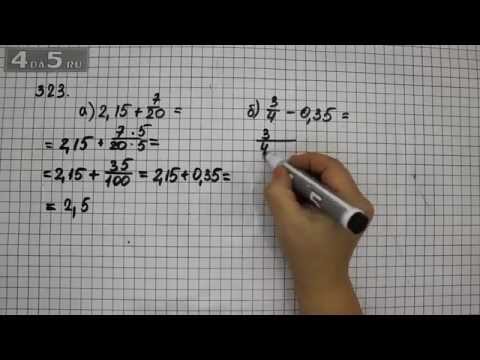 4DA5.RU
323.
а) 2,15 + 7/20 =
= 2,15 + 7·5/20·5 =
= 2,15 + 35/100 = 2,15 + 0,35 =
= 2,5
б) 3/4 - 0,35 =
3/4